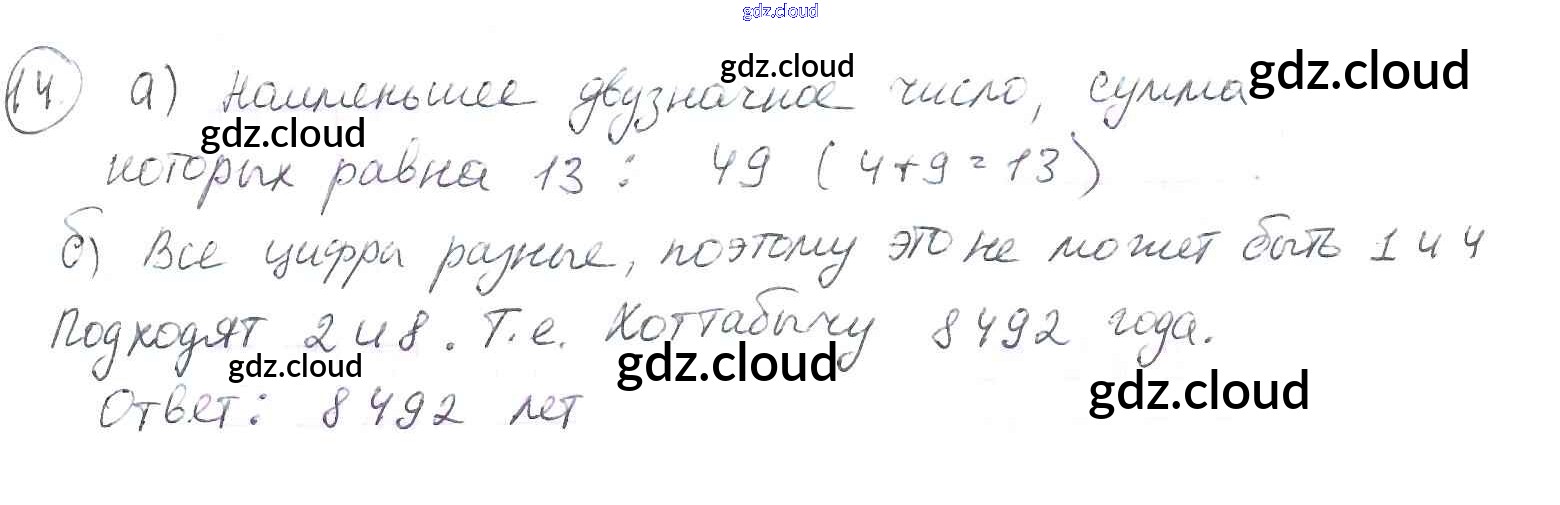 gdz.cloud
14. а) Наименьшее двузначное число, сумма
gdz.cloud
gdz.cloud
gdz.cloud
которых равна 13 : 49 (4+9=13)
б) Все цифры разные, поэтому это не может быть 1 и 4
Подходят 2 и 8. Т.е. Хоттабычу 8492 года.
gdz.cloud
gdz.cloud
gdz.cloud
Ответ: 8492 лет